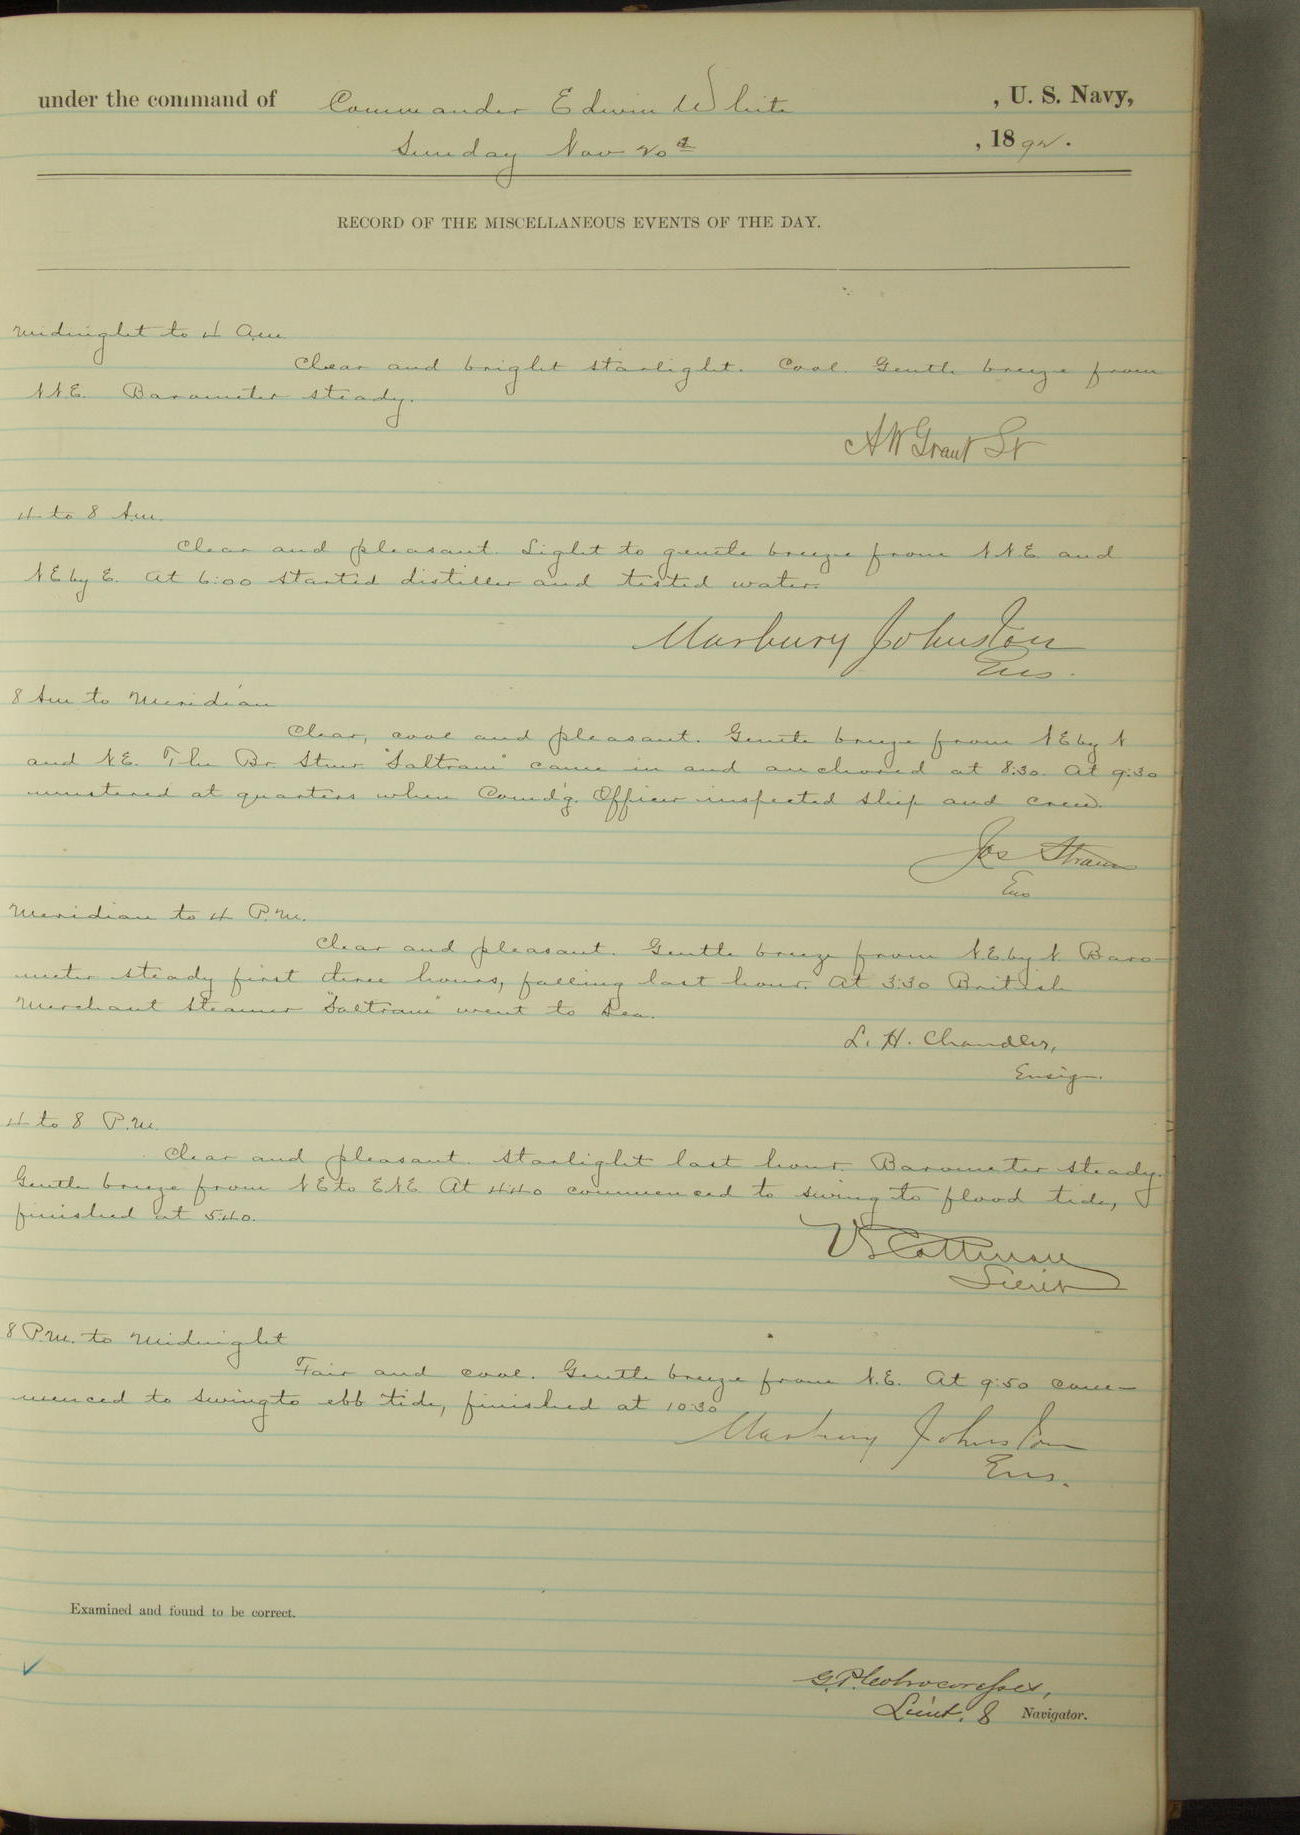 under the command of Commander Edwin White, U. S. Navy,
Sunday Nov 20th, 1892.
RECORD OF THE MISCELLANEOUS EVENTS OF THE DAY.
Midnight to 4 A.m.
Clear and bright starlight. Cool. Gentle breeze from
N.N.E. Barometer steady.
A W Grant Lt
4 to 8 A.m.
Clear and pleasant. Light to gentle breeze from N.N.E. and
N.E by E. At 6:00 started distiller and tested water.
Marbury Johnston
Ens.
8 Am to Meridian
Clear, cool and pleasant. Gentle breeze from N.E by N
and N.E. The Br. Stmr "Saltram" came in and anchored at 8:30. At 9:30
mustered at quarters when Comd'g. Officer inspected ship and crew.
Jos Strauss
Ens
Meridian to 4 P.M.
Clear and pleasant. Gentle breeze from N.E. by N. Baro-
meter steady first three hours, falling last hour. At 3:30 British
Merchant Steamer "Saltram" went to Sea.
L. H. Chandler,
Ensign.
4 to 8 P.M.
Clear and pleasant. Starlight last hour. Barometer steady.
Gentle breeze from N.E to E.N.E. At 4:40 commenced to swing to flood tide,
finished at 5:40.
V S Cottman
Lieut
8 P.M. to Midnight
Fair and cool. Gentle breeze from N.E. At 9:50 com-
menced to swing to ebb tide, finished at 10:30
Marbury Johnston
Ens.
Examined and found to be correct.
G. P. Colvocoresses,
Lieut. & Navigator.